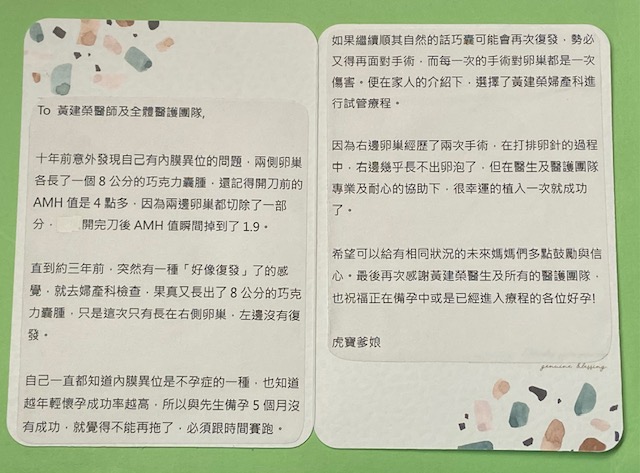 To 黃建榮醫師及全體醫護團隊,
十年前意外發現自己有內膜異位的問題，兩側卵巢
各長了一個 8 公分的巧克力囊腫，還記得開刀前的
AMH 值是 4 點多，因為兩邊卵巢都切除了一部
分，開完刀後 AMH 值瞬間掉到了 1.9。
直到約三年前，突然有一種「好像復發」了的感
覺，就去婦產科檢查，果真又長出了 8 公分的巧克
力囊腫，只是這次只有長在右側卵巢，左邊沒有復
發。
自己一直都知道內膜異位是不孕症的一種，也知道
越年輕懷孕成功率越高，所以與先生備孕 5 個月沒
有成功，就覺得不能再拖了，必須跟時間賽跑。
如果繼續順其自然的話巧囊可能會再次復發，勢必
又得再面對手術，而每一次的手術對卵巢都是一次
傷害。便在家人的介紹下，選擇了黃建榮婦產科進
行試管療程。
因為右邊卵巢經歷了兩次手術，在打排卵針的過程
中，右邊幾乎長不出卵泡了，但在醫生及醫護團隊
專業及耐心的協助下，很幸運的植入一次就成功
了。
希望可以給有相同狀況的未來媽媽們多點鼓勵與信
心。最後再次感謝黃建榮醫生及所有的醫護團隊，
也祝福正在備孕中或是已經進入療程的各位好孕!
虎寶爹娘
genuine blessing